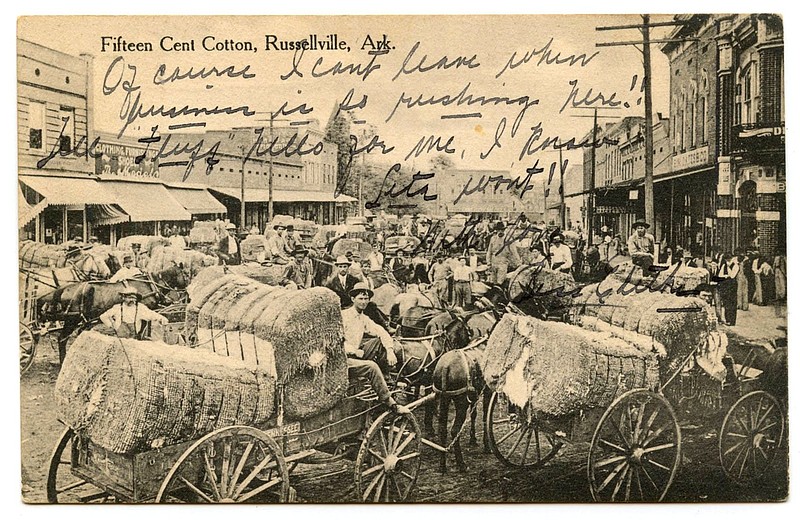 Fifteen Cent Cotton, Russellville, Ark.
Of course I cant leave when
business is so rushing here!!
Tell Fluff hello for me, I know
Lita wont!!
CLOTHING